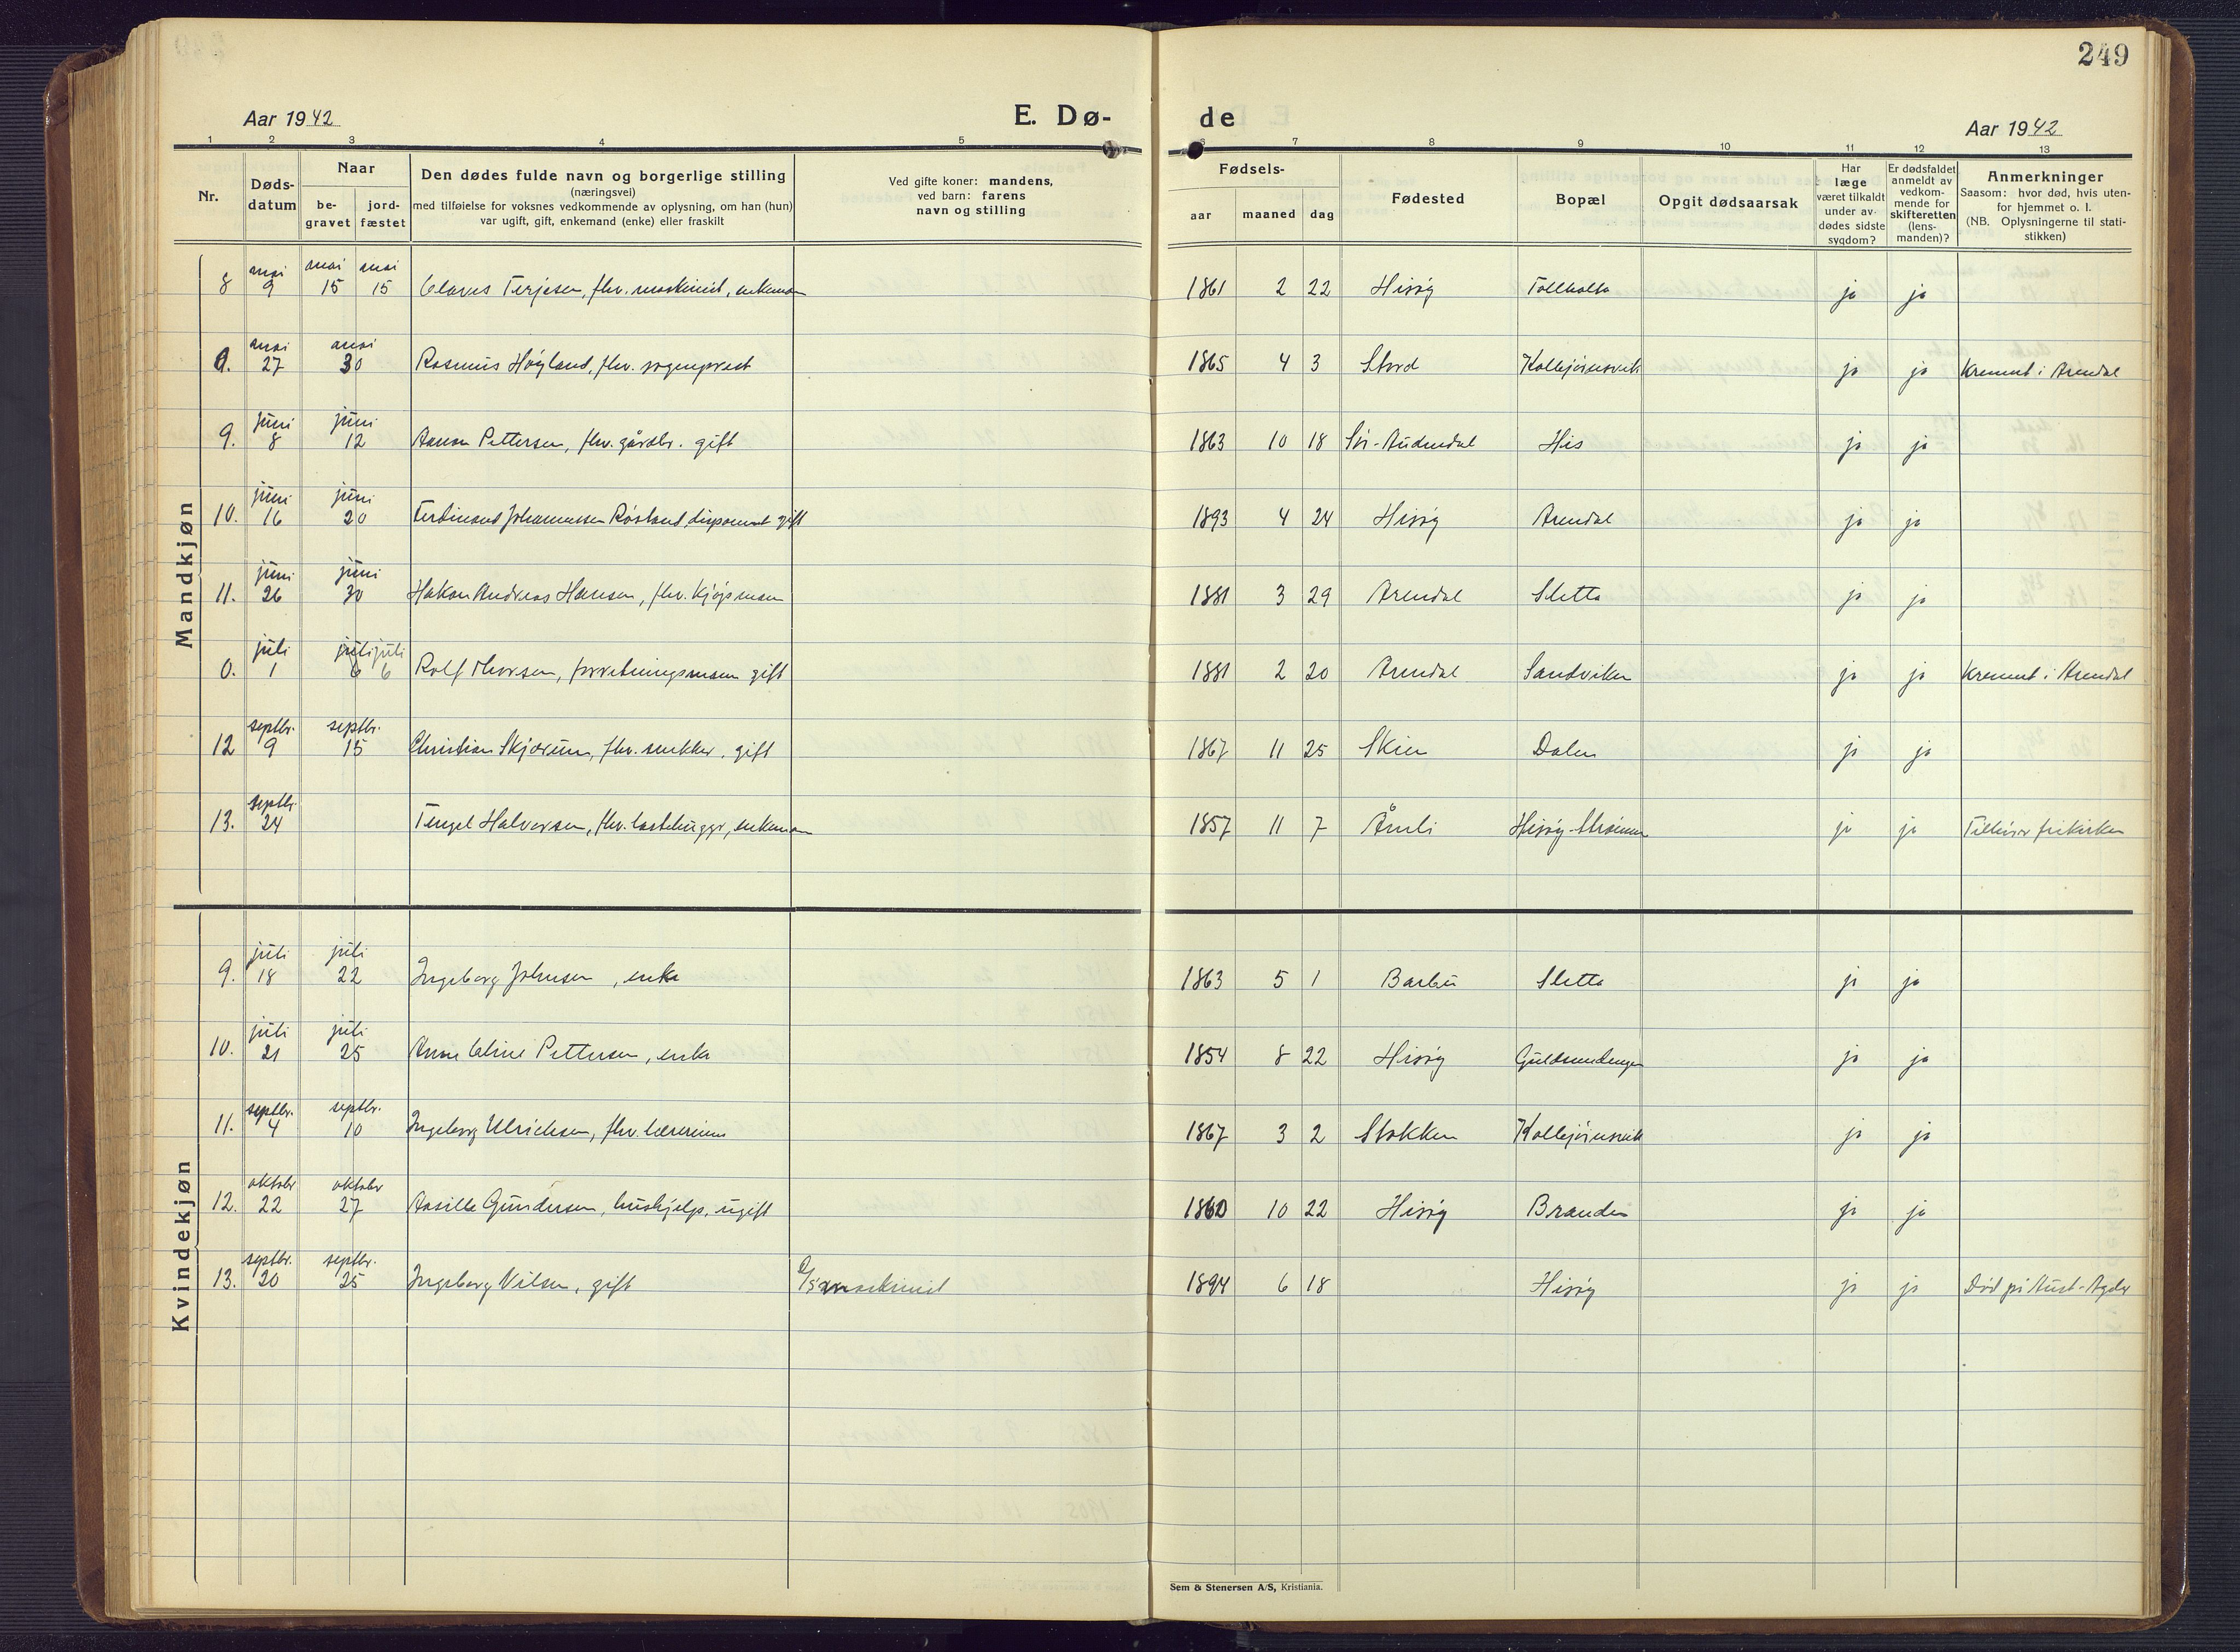 249
Aar 1942
E. Dø-
de
Aar 1942
1 2 3 4 5 6 7 8 9 10 11 12 13
Nr.
Døds-
datum
Naar
be-
gravet
jord-
fæstet
Den dødes fulde navn og borgerlige stilling
(næringsvei)
med tilføielse for voksnes vedkommende av oplysning, om han (hun)
var ugift, gift, enkemand (enke) eller fraskilt
Ved gifte koner: mandens,
ved barn: farens
navn og stilling
Fødsels-
aar maaned dag
Fødested
Bopæl
Opgit dødsaarsak
Har
læge
været tilkaldt
under av-
dødes sidste
sygdom?
Er dødsfaldet
anmeldt av
vedkom-
mende for
skifteretten
(lens-
manden)?
Anmerkninger
Saasom: hvor død, hvis uten-
for hjemmet o. l.
(NB. Oplysningerne til stati-
stikken)
Mandkjøn
mai mai mai
8 9 15 15 Olaves Terjesen, fhv. maskinist, enkeman 1861 2 22 Hisøy ja ja
mai mai
0. 27 30 Rasmus Høyland, fhv. sogneprest 1865 4 3 Stord Kolbjørnsvik ja ja Kremert i Arendal
juni juni
9. 8 12 Pettersen, fhv. gårdbr. gift 1863 10 18 Sør-Audnedal His ja ja
juni juni
10. 16 20 Ferdinand Johannessen Røsland, disponent gift 1893 4 24 Hisøy Arendal ja ja
juni juni
11. 26 30 Hakon Andreas Hansen, fhv. kjøpmann 1881 3 29 Arendal Sletta ja ja
juli juli juli
0. 1 6 6 Rolf Thorsen, forretningsmann gift 1881 2 20 Arendal Sandviken ja ja Kremert i Arendal
septbr. septbr.
12 9 15 Christian Skjærum, fhv. snekker, gift 1867 11 25 Skien Dalen ja ja
septbr.
13. 24 Tengel Halvorsen, fhv. lastehugger, enkeman 1857 11 7 Åmli Hisøy-Strømmen ja ja Tilhører frikirken
Kvindekjøn
juli juli
9. 18 22 Ingeborg Johnsen, enke 1863 5 1 Barbu Sletta ja ja
juli juli
10. 21 25 Anne Oline Pettersen, enke 1854 8 22 Hisøy Guldsmedengen ja ja
septbr. septbr.
11. 4 10 Ingeborg Ulrichsen, fhv. lærerinne 1867 3 2 Stokken Kolbjørnsvik ja ja
oktober oktober
12. 22 27 Aasille Gundersen, hushjelp, ugift 1860 10 22 Hisøy Branden ja ja
septbr. septbr.
13. 20 25 Ingeborg Nilsen, gift maskinist 1894 6 18 Hisøy ja ja Død på Aust-Agder
Sem & Stenersen A/S, Kristiania.